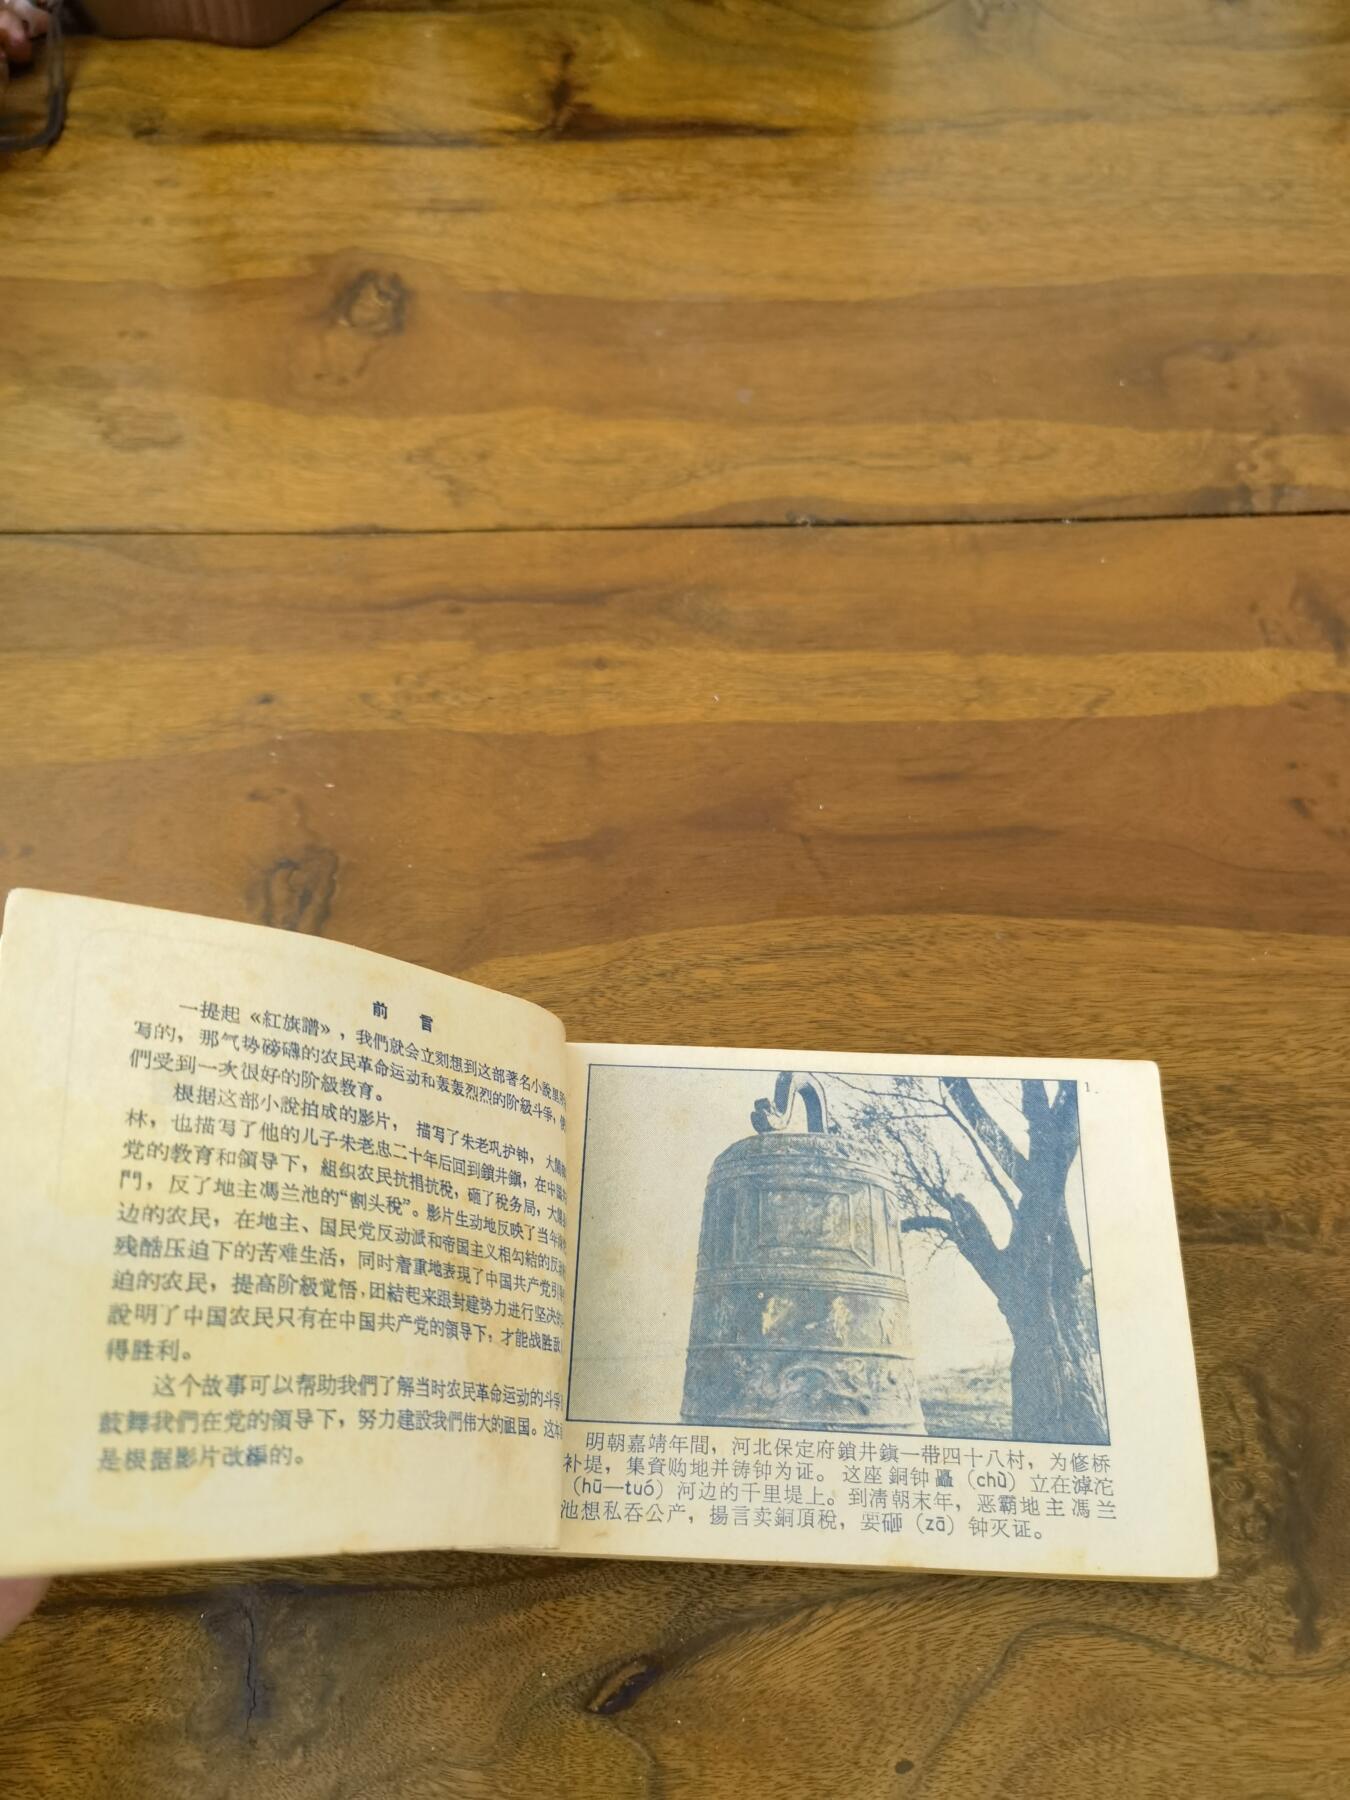 前言
一提起《紅旗譜》，我們就会立刻想到这部著名小說里所
写的，那气势磅礴的农民革命运动和轰轰烈烈的阶級斗爭，使
們受到一次很好的阶級教育。
根据这部小說拍成的影片，描写了朱老巩护钟，大鬧
林，也描写了他的儿子朱老忠二十年后回到鎖井鎭，在中国共
党的教育和領导下，組织农民抗捐抗稅，砸了稅务局，大鬧
鬥，反了地主馮兰池的“割头稅”。影片生动地反映了当年
边的农民，在地主、国民党反动派和帝国主义相勾結的反
残酷压迫下的苦难生活，同时着重地表現了中国共产党引
迫的农民，提高阶級觉悟，团結起来跟封建势力进行坚决的
說明了中国农民只有在中国共产党的領导下，才能战胜敌
得胜利。
这个故事可以帮助我們了解当时农民革命运动的斗爭
鼓舞我們在党的領导下，努力建設我們伟大的祖国。这本
是根据影片改編的。
1.
明朝嘉靖年間，河北保定府鎖井鎭一带四十八村，为修桥
补堤，集資购地并涛钟为证。这座銅钟矗（chù）立在滹沱
（hū—tuó）河边的千里堤上。到清朝末年，恶霸地主馮兰
池想私吞公产，揚言卖銅頂稅，要砸（zā）钟灭证。